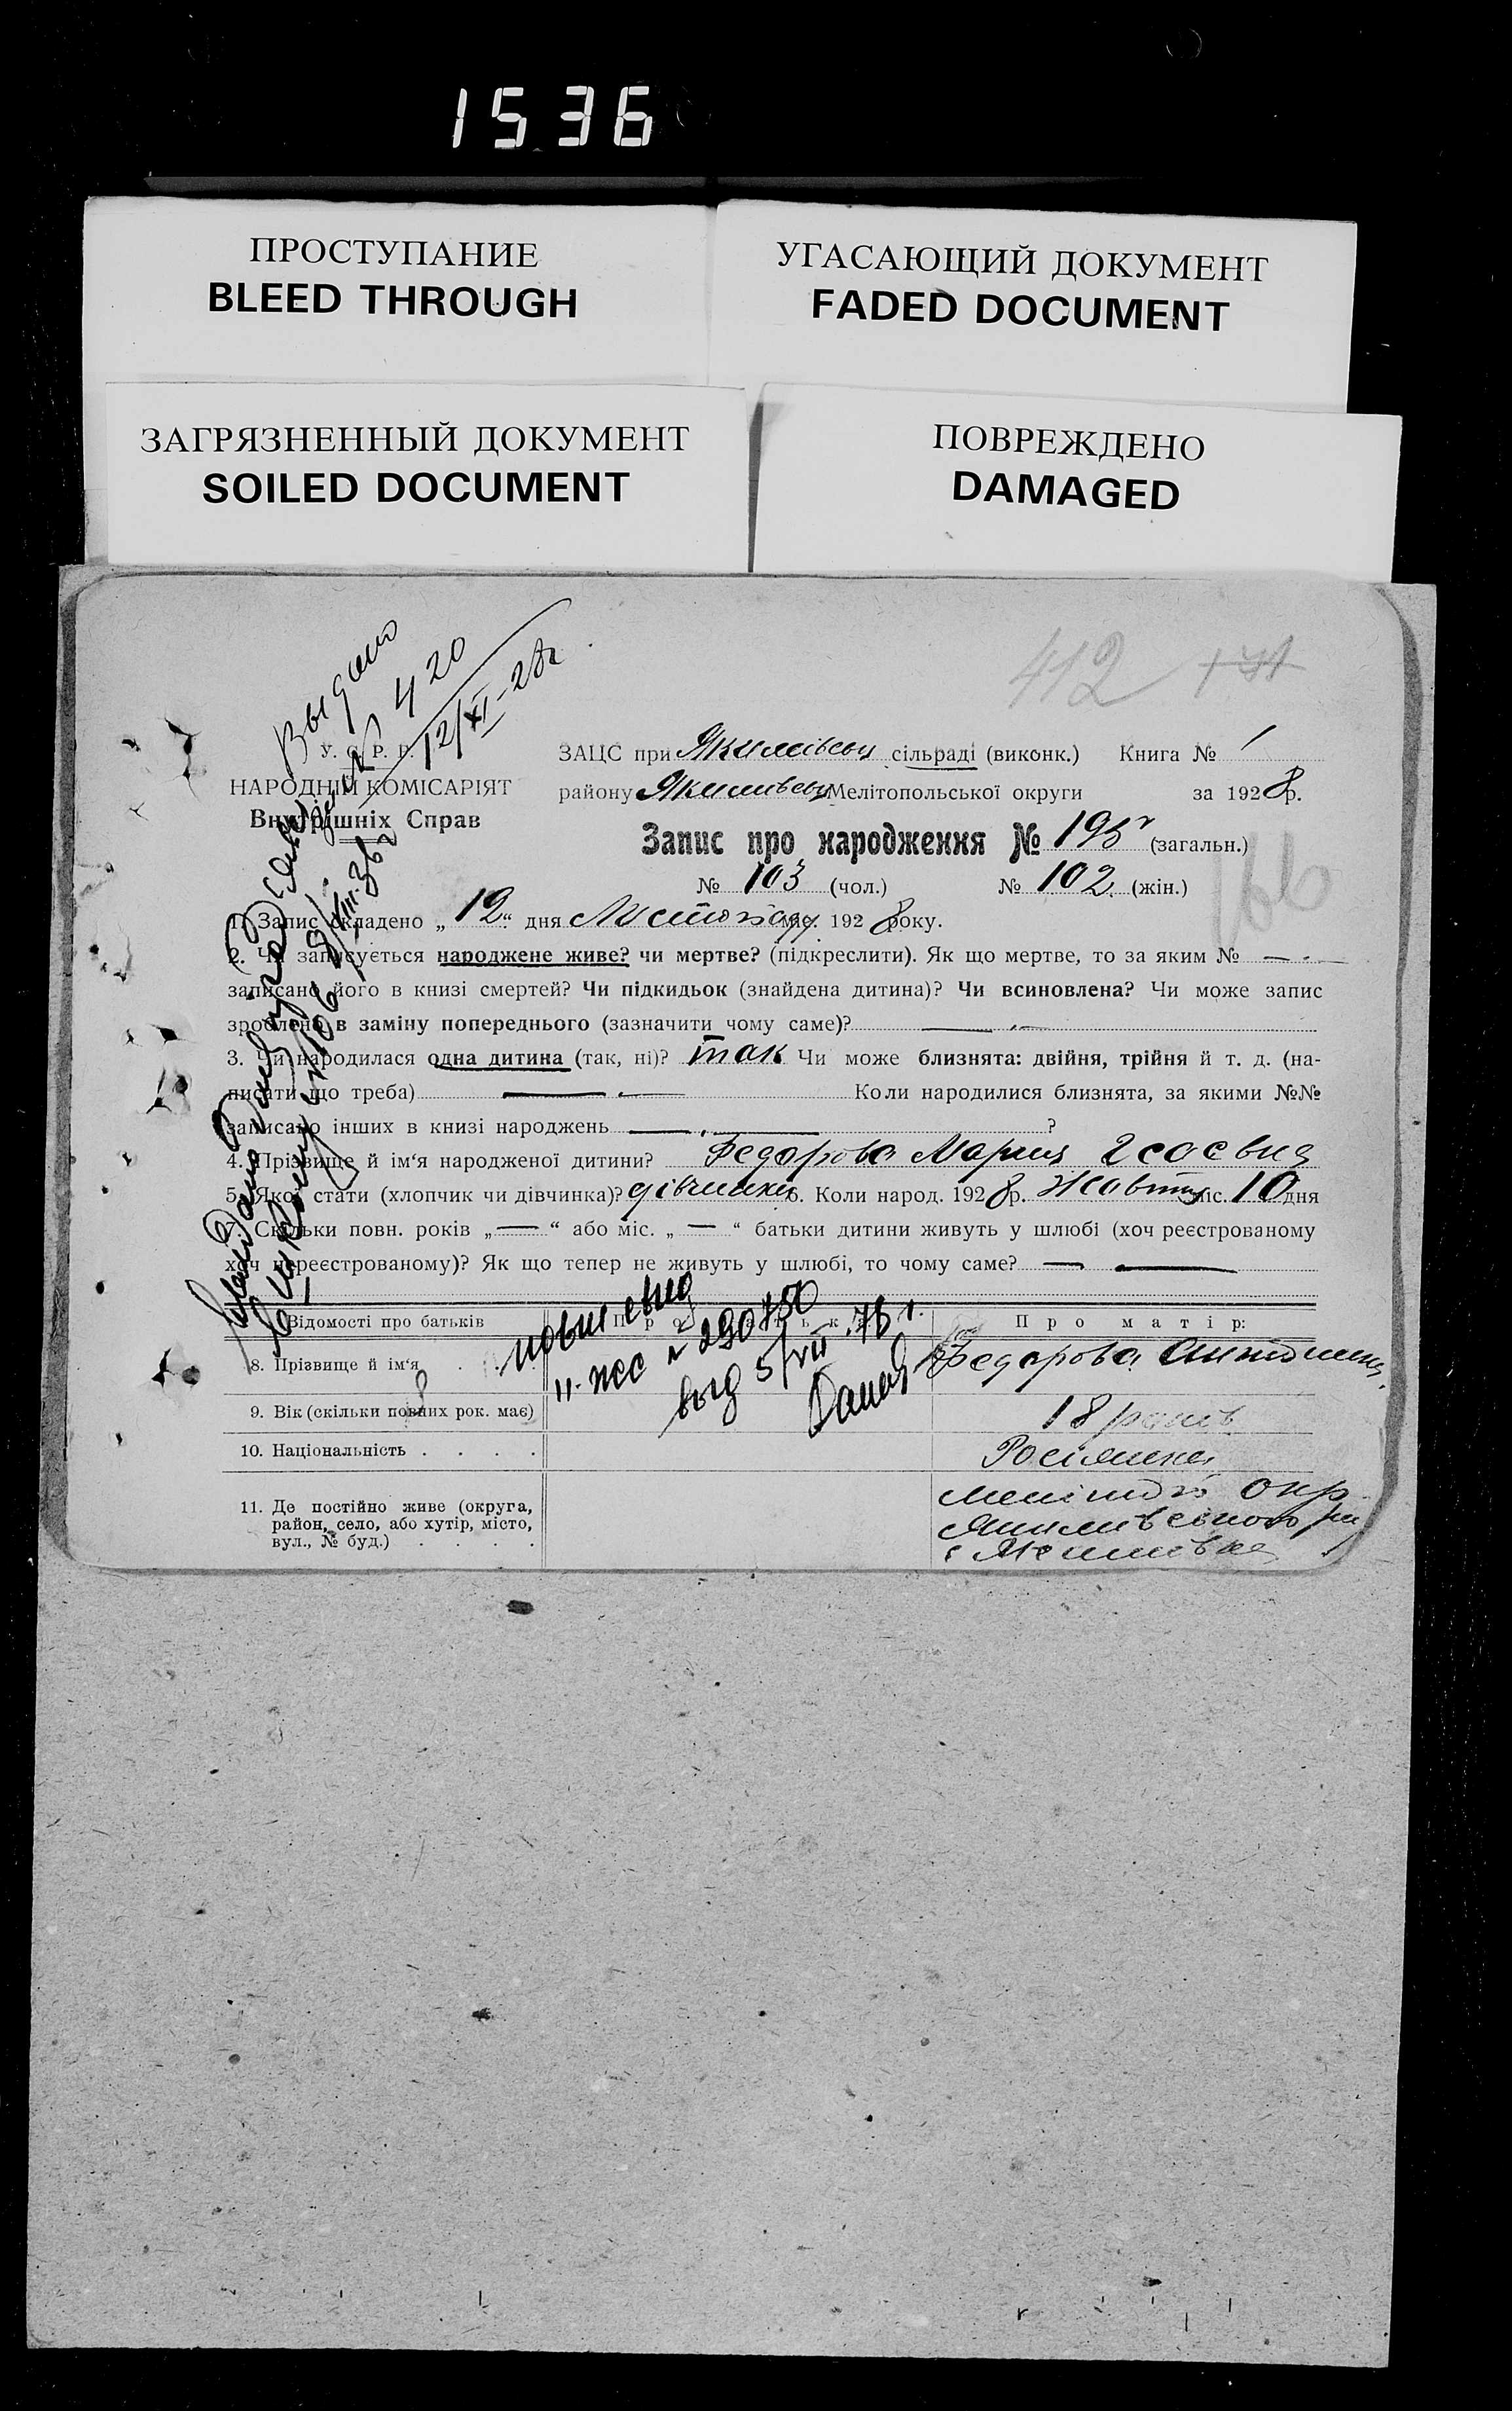 1536
ПРОСТУПАНИЕ
BLEED THROUGH
УГАСАЮЩИЙ ДОКУМЕНТ
FADED DOCUMENT
ЗАГРЯЗНЕННЫЙ ДОКУМЕНТ
SOILED DOCUMENT
ПОВРЕЖДЕНО
DAMAGED
412
Выдано
420
12/XI-28г
У. С. Р. Р.
НАРОДНІЙ КОМІСАРІЯТ
Внутрішніх Справ
ЗАЦС при Якимівськ сільраді (виконк.) Книга № 1
району Якимівськ Мелітопольської округи за 1928 р.
Запис про народження № 195 (загальн.)
№ 103 (чол.) № 102 (жін.)
166
1. Запис складено „12“ дня Листопаду міс. 1928 року.
2. Чи записується народжене живе? чи мертве? (підкреслити). Як що мертве, то за яким № —
записано його в книзі смертей? Чи підкидьок (знайдена дитина)? Чи всиновлена? Чи може запис
зроблено в заміну попереднього (зазначити чому саме)? —
3. Чи народилася одна дитина (так, ні)? так Чи може близнята: двійня, трійня й т. д. (на-
писати що треба) — Коли народилися близнята, за якими №№
записано інших в книзі народжень — ?
4. Прізвище й ім‘я народженої дитини? Федорова Мария
5. Якої статі (хлопчик чи дівчинка)? дівчинка 6. Коли народ. 1928 р. Жовтня міс. 10 дня
7. Скільки повн. років „—“ або міс. „—“ батьки дитини живуть у шлюбі (хоч реєстрованому
хоч нереєстрованому)? Як що тепер не живуть у шлюбі, то чому саме? — —
Відомості про батьків
Про батька
Про матір:
8. Прізвище й ім‘я . .
Федорова
9. Вік (скільки повних рок. має)
18 років
10. Національність . . . .
Росіянка
11. Де постійно живе (округа,
район, село, або хутір, місто,
вул., № буд.) . . . .
окр
Якимівського
с
№ 290750
выд 5/VII.78 г.